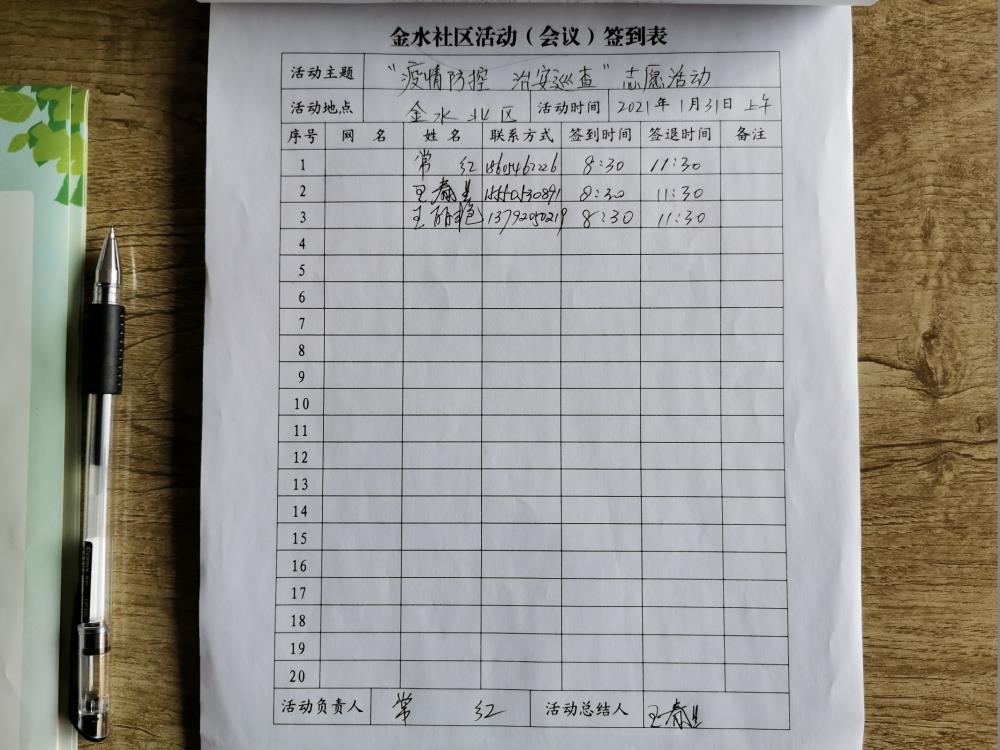 金水社区活动（会议）签到表
活动主题 “疫情防控 治安巡查”志愿活动
活动地点 金水北区 活动时间 2021年1月31日 上午
序号 网名 姓名 联系方式 签到时间 签退时间 备注
1 常红 8:30 11:30
2 王春 15550530891 8:30 11:30
3 王丽艳 13792050219 8:30 11:30
4
5
6
7
8
9
10
11
12
13
14
15
16
17
18
19
20
活动负责人 常红 活动总结人 王春